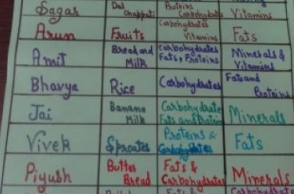 Sagar Dal Chappati Proteins Carbohydrate Vitamins
Arun Fruits Carbohydrates Vitamins Fats
Amit Bread and Milk Carbohydrates Fats, Proteins Minerals & Vitamins
Bhavya Rice Carbohydrates Fats and Proteins
Jai Banana Milk Carbohydrate Fats and Protein Minerals
Vivek Sprouts Proteins & Carbohydrates Fats
Piyush Butter Bread Fats & Carbohydrates Minerals